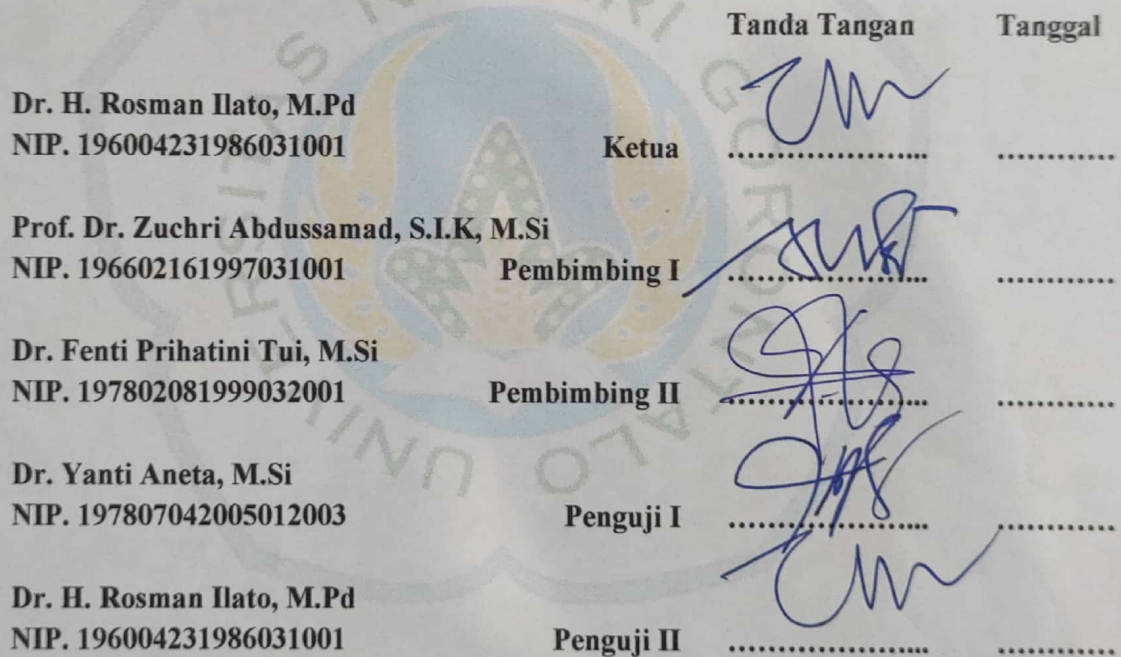 Tanda Tangan Tanggal
Dr. H. Rosman Ilato, M.Pd
NIP. 196004231986031001 Ketua .................... ............
Prof. Dr. Zuchri Abdussamad, S.I.K, M.Si
NIP. 196602161997031001 Pembimbing I .................... ............
Dr. Fenti Prihatini Tui, M.Si
NIP. 197802081999032001 Pembimbing II .................... ............
Dr. Yanti Aneta, M.Si
NIP. 197807042005012003 Penguji I .................... ............
Dr. H. Rosman Ilato, M.Pd
NIP. 196004231986031001 Penguji II .................... ............
UNIVERSITAS NEGERI GORONTALO